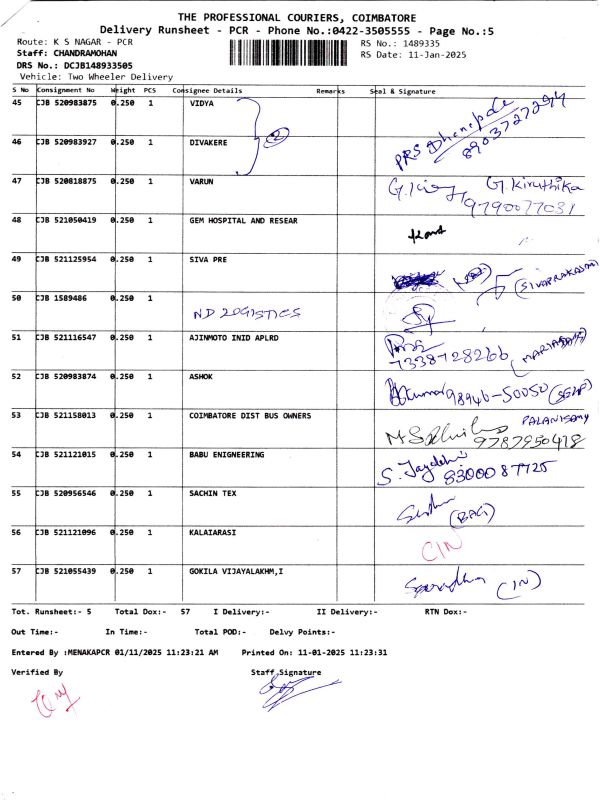 THE PROFESSIONAL COURIERS, COIMBATORE
Delivery Runsheet - PCR - Phone No.:0422-3505555 - Page No.:5
Route: K S NAGAR - PCR
RS No.: 1489335
Staff: CHANDRAMOHAN
RS Date: 11-Jan-2025
DRS No.: DCJB148933505
Vehicle: Two Wheeler Delivery
S No Consignment No Weight PCS Consignee Details Remarks Seal & Signature
45 CJB 520983875 0.250 1 VIDYA
2
PRS
8903727294
46 CJB 520983927 0.250 1 DIVAKERE
47 CJB 520818875 0.250 1 VARUN
G. Kiruthika
9790077031
48 CJB 521050419 0.250 1 GEM HOSPITAL AND RESEAR
49 CJB 521125954 0.250 1 SIVA PRE
(SIVAPRAKASAM)
50 CJB 1589486 0.250 1
ND LOGISTICS
51 CJB 521116547 0.250 1 AJINMOTO INID APLRD
7338728266
52 CJB 520983874 0.250 1 ASHOK
98946-50050
53 CJB 521158013 0.250 1 COIMBATORE DIST BUS OWNERS
PALANISAMY
9787950418
54 CJB 521121015 0.250 1 BABU ENIGNEERING
S. Jaydehi
8300087725
55 CJB 520956546 0.250 1 SACHIN TEX
(BAG)
56 CJB 521121096 0.250 1 KALAIARASI
CIN
57 CJB 521055439 0.250 1 GOKILA VIJAYALAKHM,I
(IN)
Tot. Runsheet:- 5 Total Dox:- 57 I Delivery:- II Delivery:- RTN Dox:-
Out Time:- In Time:- Total POD:- Delvy Points:-
Entered By :MENAKAPCR 01/11/2025 11:23:21 AM Printed On: 11-01-2025 11:23:31
Verified By Staff Signature